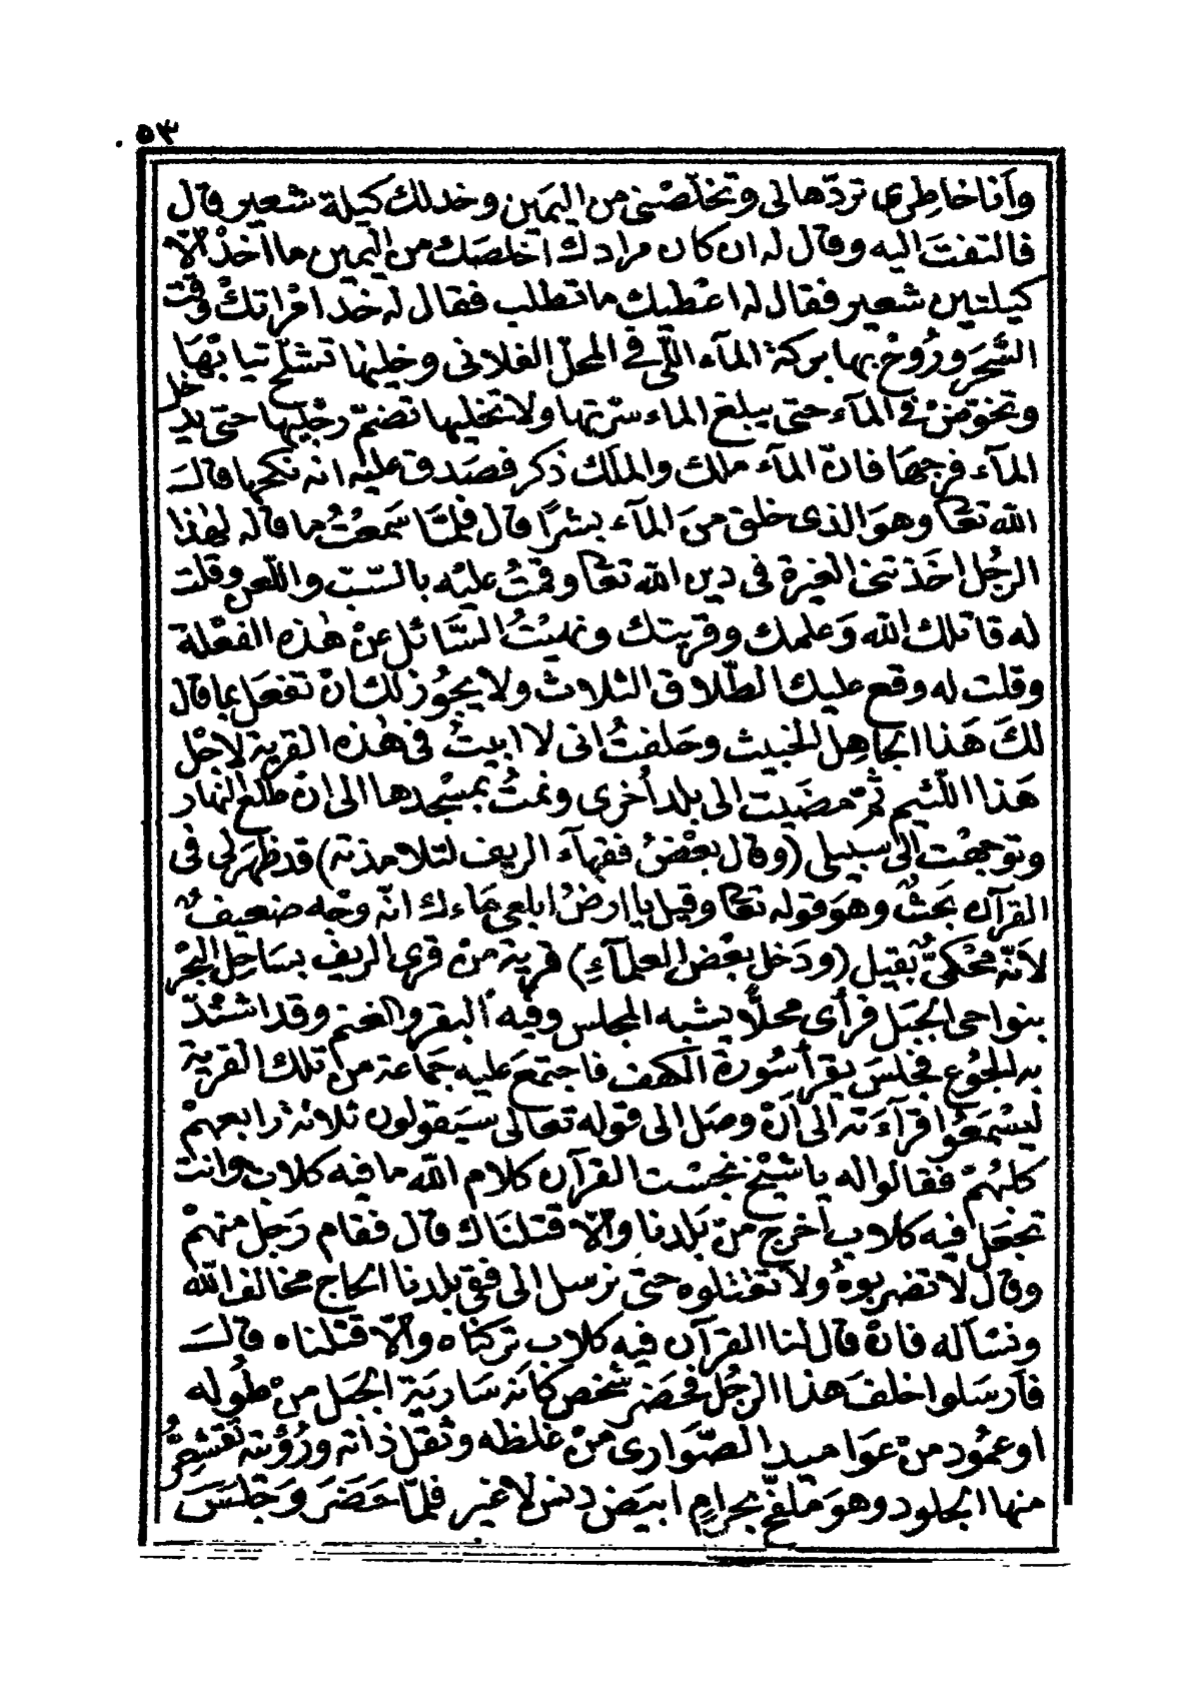 ٥٣
وأنا خاطرى تردّها لى وتخلّصنى من اليمين وخد لك كيلة شعير قال
فالتفتَ اليه وقال له ان كان مرادك اخلصك من اليمين ما اخذْ الّا
كيلتين شعير فقال له اعْطيك ما تطلب فقال له خد امْراتكْ وقت
السَّحَر ورُوحْ بها بركة المآء اللّى فى المحلّ الفلانى وخليها تشلّح تيابْهَا
وتخوّضْ فى المآء حتى يبلغ الماء سرّتها ولا تخليها تضمّ رجْليها حتى يدخل
المآء فرجهَا فانّ المآء ملك والملَك ذكر فصَدق عليْه انه نكحها قالَ
الله تعَا وهوَ الذى خلق منَ المآء بشرًا قال فلمّا سَمعْتُ ما قاله لهٰذا
الرجُل اخَذتنى الغيرة فى دين الله تعَا وقمتُ عليْه بالسّبّ واللّعن وقلت
له قاتلك الله وَعلمك وقريتك ونهيْتُ السَّائل عنْ هٰذه الفعْلة
وقلت له وقع عليك الطّلاق الثلاث ولا يجُوز لك انْ تفعَل بما قال
لكَ هَذا الجَاهِل الخبيث وحَلفتُ انى لا ابيتُ فى هٰذه القرية لاجْل
هَذا اللّئيم ثمّ مضَيت الى بلد أخرى ونمتُ بمسْجدها الى انْ طلعَ النهار
وتوجهْت الى سبيلى (وقال بعْضُ فقهآء الريف لتلامذته) قد ظهَر لى فى
القرآن بَحثٌ وهوَ قوله تعَا وقيل يا ارضُ ابلعى ماءك انّه وجْه ضعيفٌ
لأنّه محْكىٌّ بقيل (ودَخل بعْض العلمآءِ) قرية منْ قرى الريف بسَاحِل البحْر
بنواحى الجبَل فرأى محلًّا يشبه المجلس وفيه البقر والغنم وقد اشتدّ
به الجوع فجلسَ يقرأ سُورة الكهف فاجتمعَ عليه جَماعة من تلك القرية
ليسْمَعُوا قرآءَته الى انْ وصَل الى قوله تعَالى سَيَقولون ثلاثة رابعهمْ
كلبُهُمْ فقالوا له يا شيْخ نجسْت القرآن كلام الله ما فيه كلاب وانت
تجعَل فيه كلاب اخرج منْ بَلدنا والّا قتلنَاك قال فقام رَجل منهمْ
وقال لا تضربوهُ ولا تقتلوه حتىّ نرسل الى فقى بلدنا الحاج مخالف الله
ونسْأله فانْ قال لنا القرآن فيه كلاب تركناه والّا قتلناه قالَ
فأرسَلوا خلفَ هَذا الرجُل فحضَر شخص كأنه سَارية الجبَل منْ طُوله
او عمُود منْ عَوَاميد الصّوَارى منْ غلظه وثقل ذاته ورُؤْيته تقشعِرُّ
منها الجلود وهوَ ملفّع بحرامٍ ابيَض دنس لا غير فلمّا حَضَر وَجَلسَ